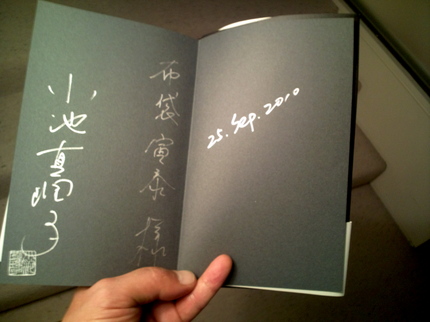 布袋寅泰様
小池真理子
25. Sep. 2010